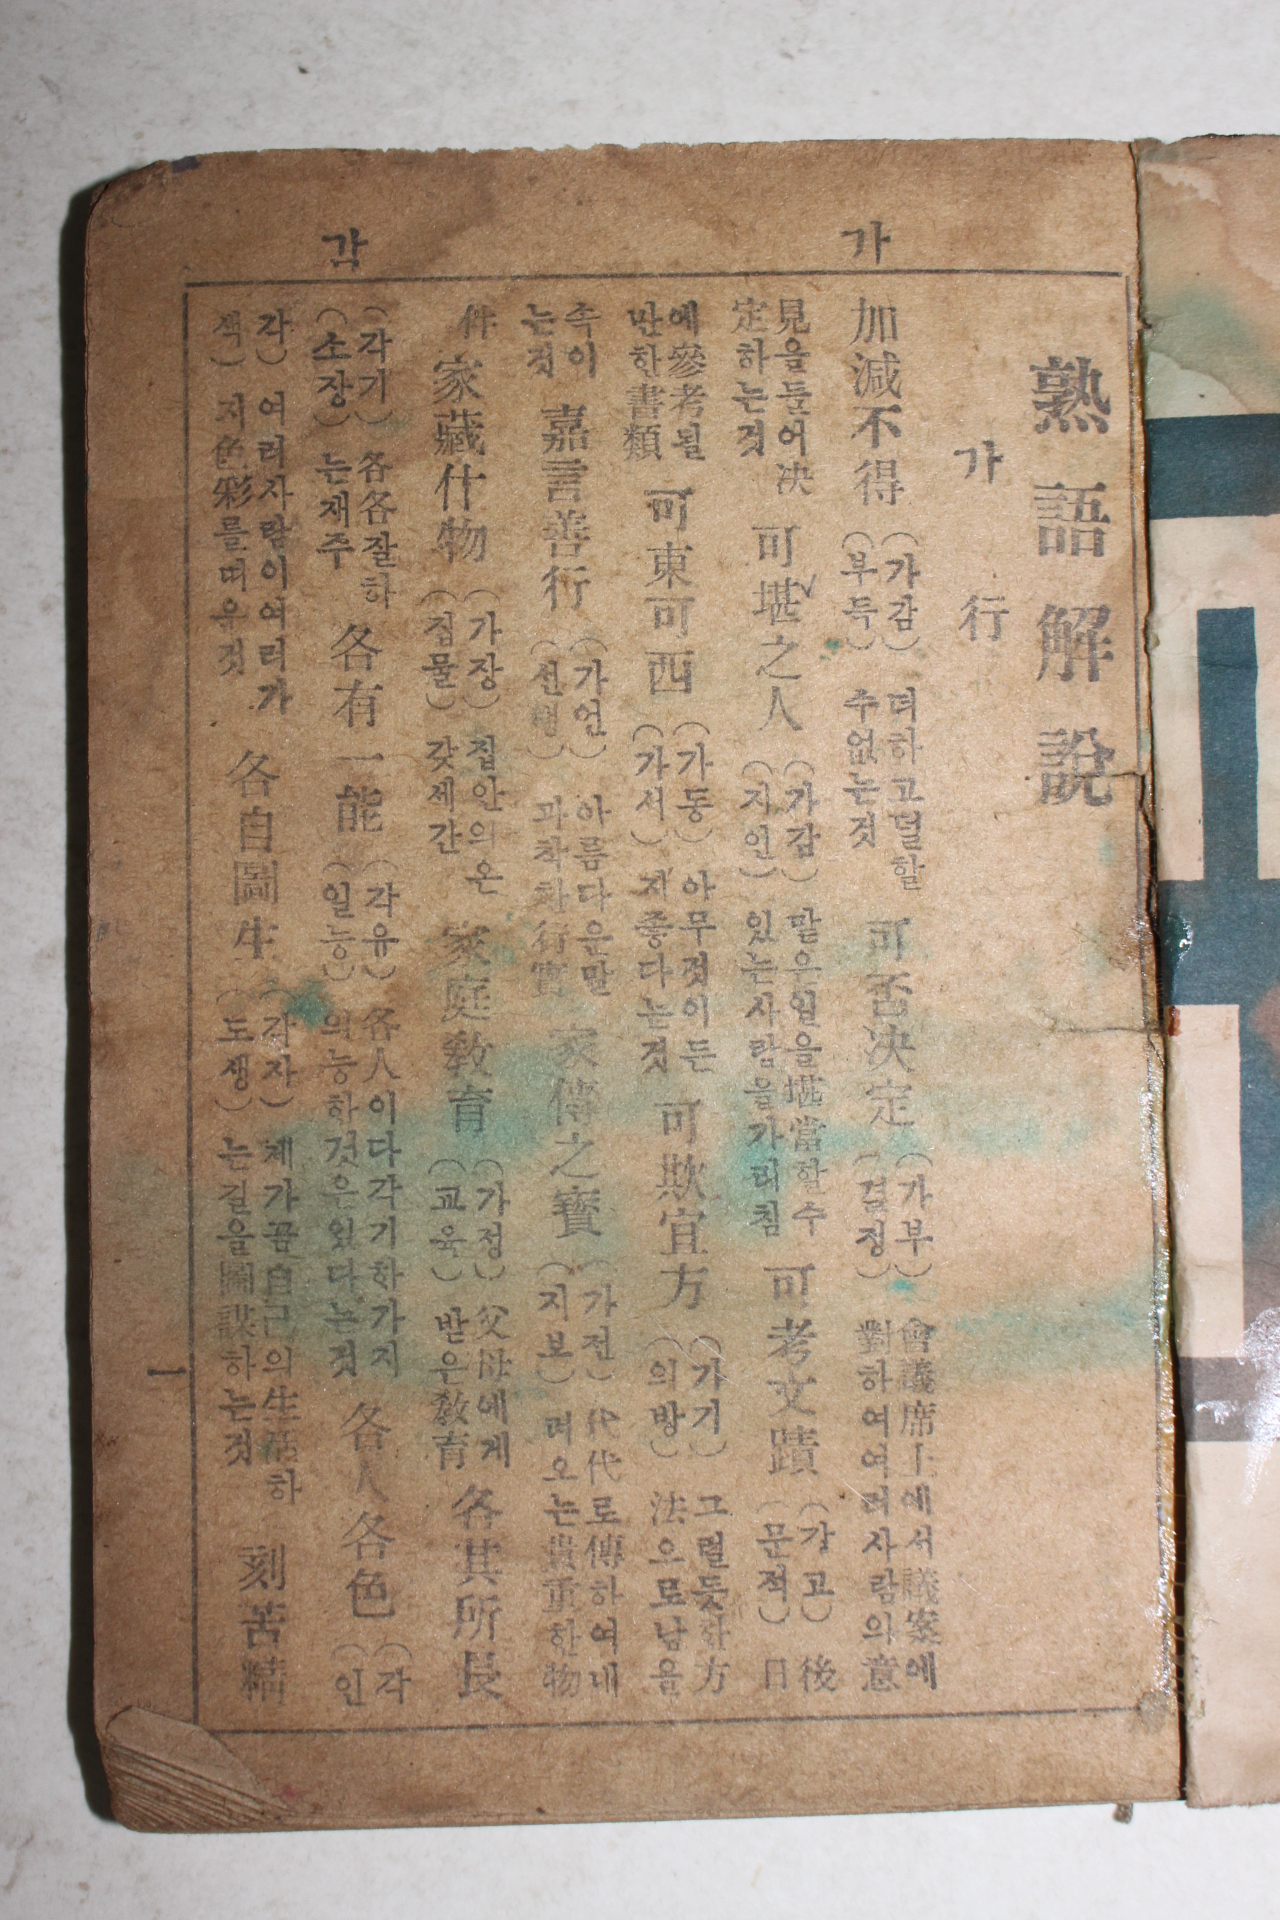 가
각
熟語解說
가行
加減不得（가감부득）더하고덜할수없는것 可否決定（가부결정）會議席上에서議案에對하여여러사람의意
見을들어決定하는것 可堪之人（가감지인）맡은일을堪當할수있는사람을가리침 可考文蹟（가고문적）後日
에參考될만한書類 可東可西（가동가서）아무것이든지좋다는것 可欺宜方（가기의방）그럴듯한方法으로남을
속이는것 嘉言善行（가언선행）아름다운말과착한行實 家傳之寶（가전지보）代代로傳하여내려오는貴重한物
件 家藏什物（가장집물）집안의온갖세간 家庭敎育（가정교육）父母에게받은敎育 各其所長
（각기소장）各各잘하는재주 各有一能（각유일능）各人이다각기한가지의능한것은있다는것 各人各色（각인
각색）여러사람이여러가지色彩를띠유것 各自圖生（각자도생）제가끔自己의生活하는길을圖謀하는것 刻苦精
一